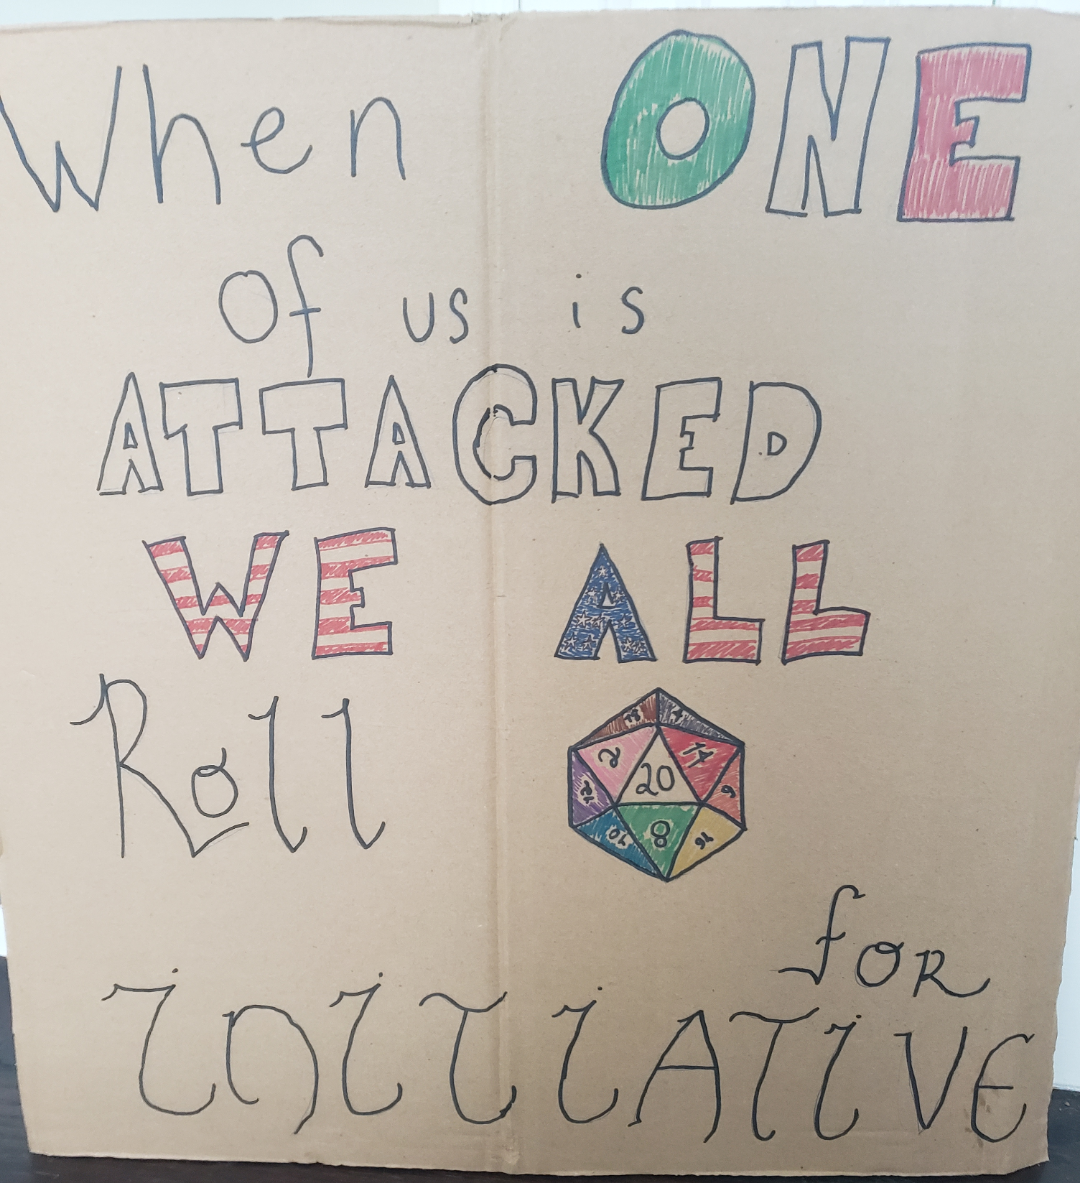 When ONE
of us is
ATTACKED
WE ALL
Roll
20
2
14
8
10
16
6
12
for
iniTiATiVE